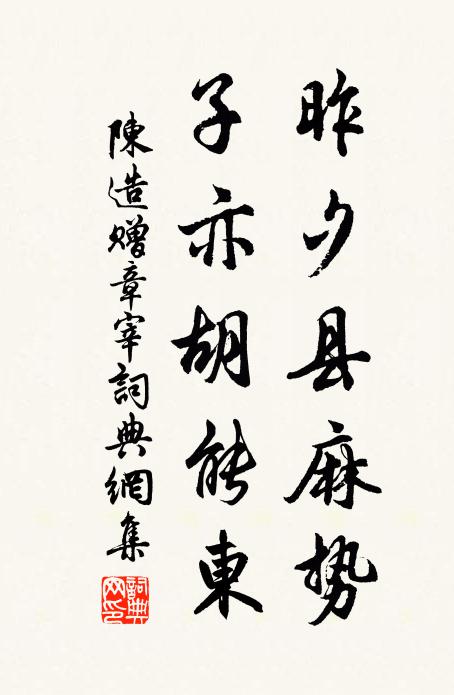 昨夕县麻势
子亦胡能東
陳造贈章宰詞典網集
詞典網印